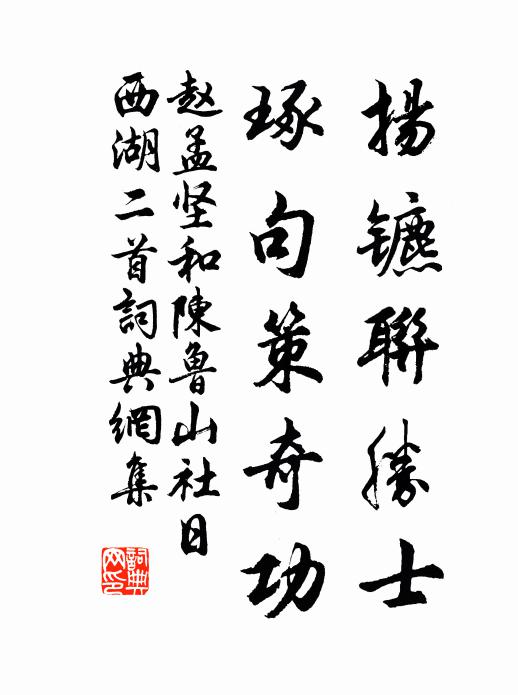 揚镳聯勝士
琢句策奇功
赵孟坚和陳魯山社日
西湖二首詞典網集
詞典网印